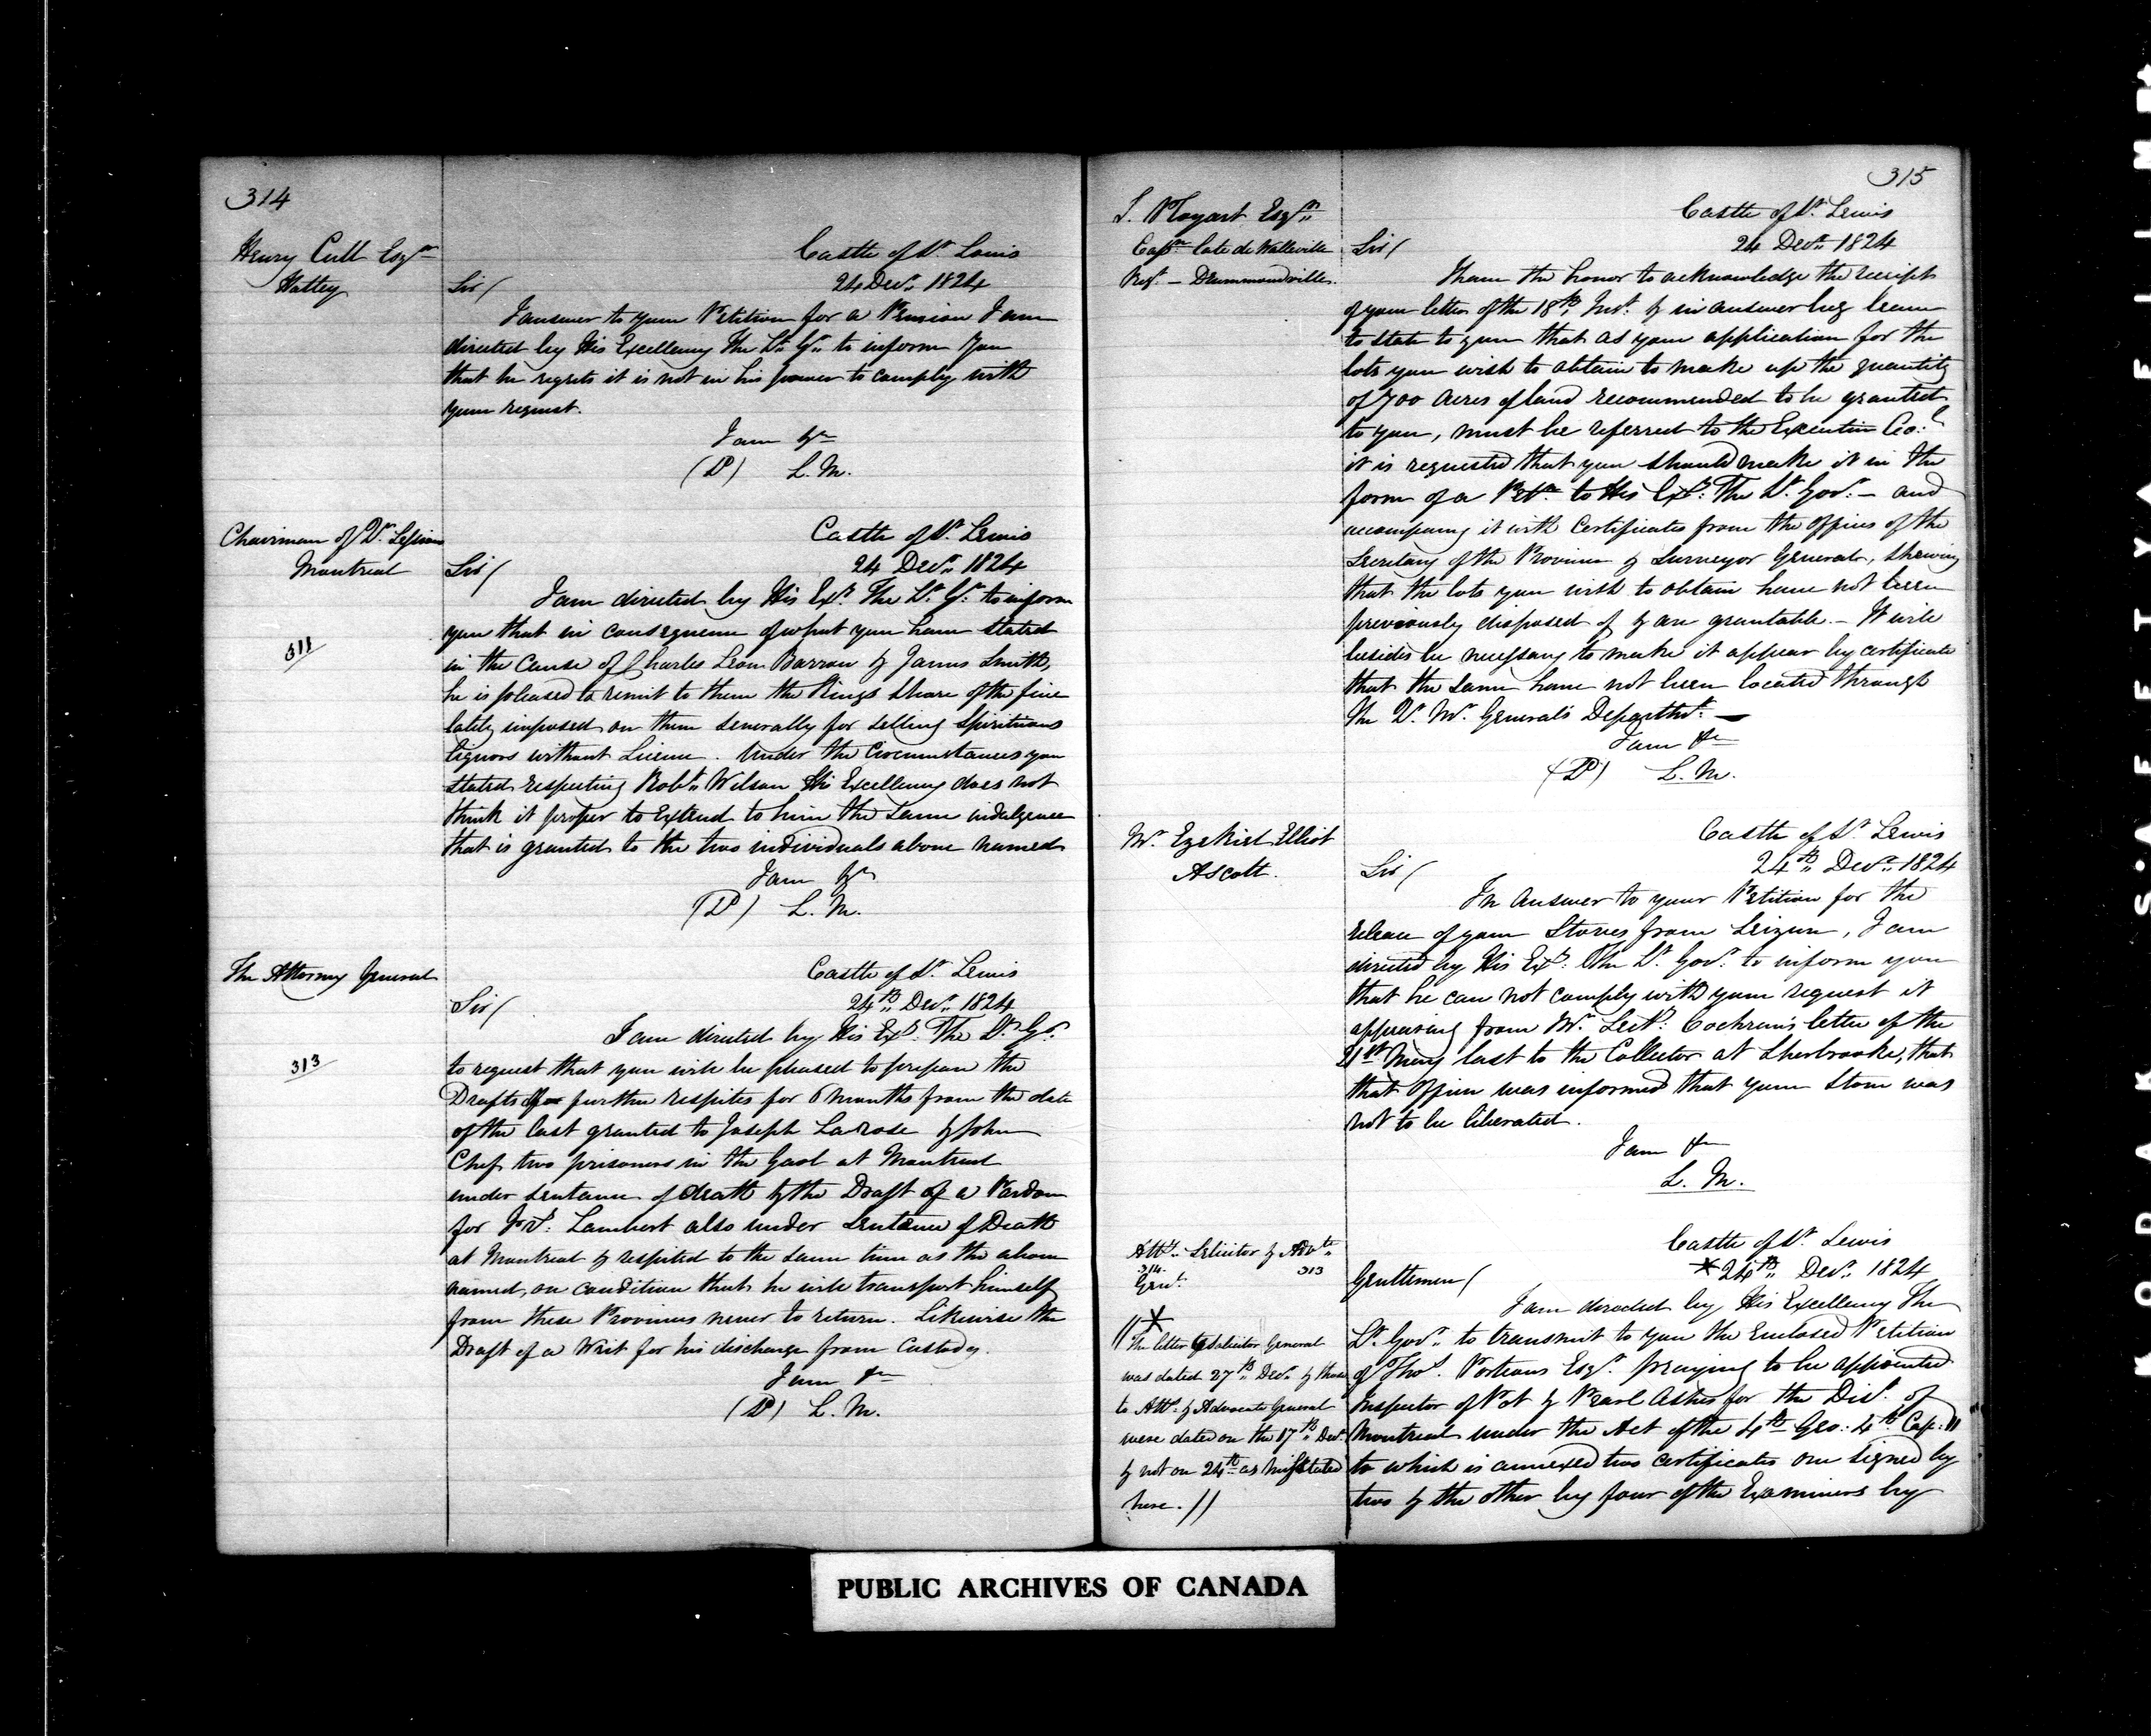 314
Henry Cull Esqr
Hatley
Castle of St. Louis
24 Decr. 1824
Sir/
I answer to your Petition for a Pension I am
directed by His Excellency The Lt. Gr. to inform you
that he regrets it is not in his power to comply with
your request.
I am &c
(D) L. M.
Chairman of Qr. Sessions
Montreal
Castle of St. Lewis
24 Decr. 1824
Sir/
I am directed by His Exy. The Lt. Gr. to inform
you that in consequence of what you have stated
311
in the Cause of Charles Leon Barron & James Smith,
he is pleased to remit to them the Kings Share of the fine
lately imposed on them severally for selling Spirituous
liquors without Licence. Under the Circumstances you
stated respecting Robt. Wilson His Excellency does not
think it proper to Extend to him the same indulgence
that is granted to the two individuals above named
I am &c
(D) L. M.
The Attorney General
Castle of St. Lewis
24th Decr. 1824
Sir/
I am directed by His Exy. The Lt. Gr.
313
to request that you will be pleased to prepare the
Drafts of further respites for 6 Months from the date
of the last granted to Joseph Larose & John
Chef two prisoners in the Gaol at Montreal
under sentence of death & the Draft of a Pardon
for Lambert also under Sentence of Death
at Montreal & respited to the same time as the above
named, on condition that he will transport himself
from these Provinces never to return. Likewise the
Draft of a Writ for his discharge from Custody.
I am &c
(D) L. M.
315
Esqr.
Capn. late de Watteville
Regt. - Drummondville.
Castle of St. Lewis
24 Decr. 1824
Sir/
I have the honor to acknowledge the receipt
of your letter of the 18th Inst. & in answer beg leave
to state to you that as your application for the
lots you wish to obtain to make up the quantity
of 700 Acres of land recommended to be granted
to you, must be referred to the Executive Col.
it is requested that you should make it in the
form of a Petn. to His Exy. The Lt. Govr. - and
accompany it with Certificates from the Offices of the
Secretary of the Province & Surveyor General, shewing
that the lots you wish to obtain have not been
previously disposed of & are grantable. - It will
besides be necessary to make it appear by certificate
that the same have not been located through
the Qr. Mr. General's Departmt. -
I am &c
(D) L. M.
Mr. Ezekiel Elliot
Ascott.
Castle of St. Lewis
24th Decr. 1824
Sir/
In Answer to your Petition for the
release of your Stoves from Seizure, I am
directed by His Exy. The Lt. Govr. to inform you
that he can not comply with your request it
appearing from Mr. Secy. Cochran's letter of the
21st May last to the Collector at Sherbrooke, that
that Officer was informed that your Stove was
not to be liberated.
I am &c
L. M.
Atty. Solicitor & Advte.
314. 313
Genl.
Castle of St. Lewis
* 24th Decr. 1824
Gentlemen/
I am directed by His Excellency The
Lt. Govr. to transmit to you the Enclosed Petition
of Thos. Porteous Esqr. praying to be appointed
Inspector of Pot & Pearl Ashes for the Dist. of
Montreal under the Act of the 4th Geo: 4th Cap: 11
to which is annexed two certificates one signed by
two & the other by four of the Examiners by
// *
The letter to Solicitor General
was dated 27th Decr. & those
to Atty. & Advocate General
were dated on the 17th Decr.
& not on 24th as misstated
here. //
PUBLIC ARCHIVES OF CANADA
KODAK SAFETY FILM